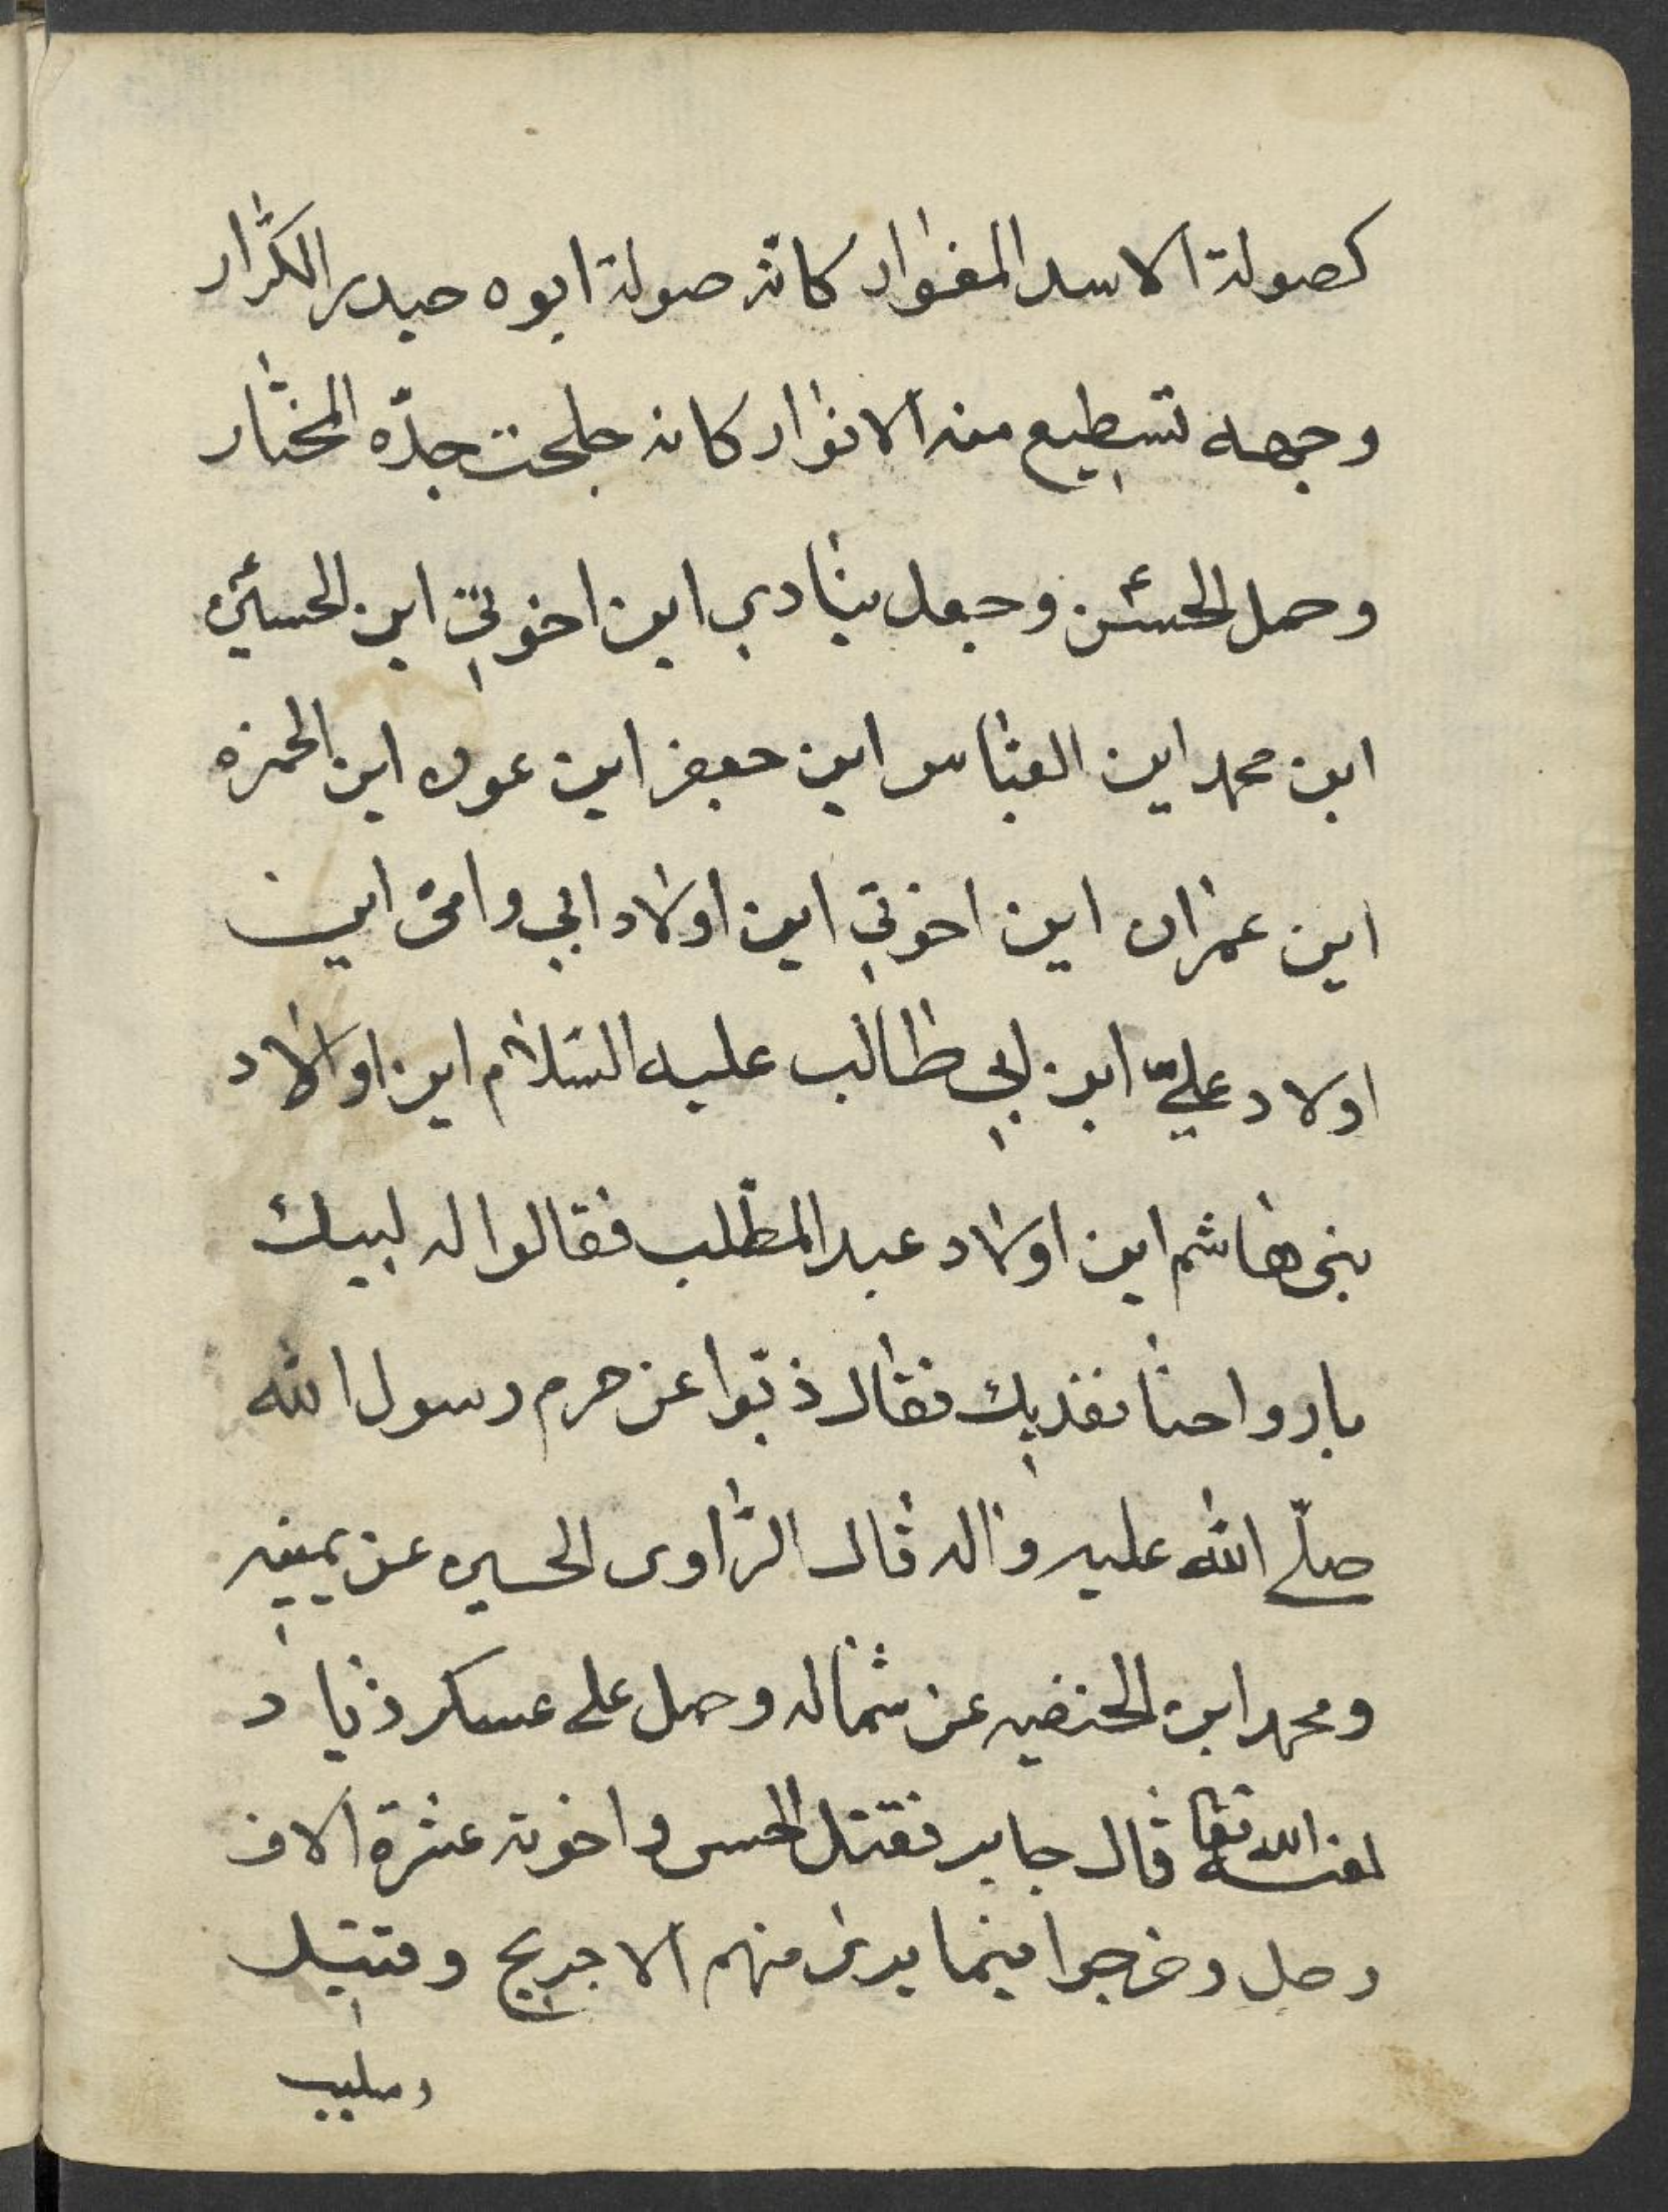 كصولة الاسد المغوار كانّه صولة ابوه حيدر الكرّار
وجهه تسطيع منه الانوار كانه جدّه المختار
وحمل الحسن وجعل ينادي اين اخوتي اين الحسين
اين محمد اين العبّاس اين جعفر اين عون اين الحمزه
اين عمران اين اخوتي اين اولاد ابي وامّى اين
اولاد عليّ ابن ابي طالب عليه السّلام اين اولاد
بنى هاشم اين اولاد عبد المطّلب فقالوا له لبيك
بارواحنا نفديك فقال ذبّوا عن حرم رسول الله
صلّى الله عليه واله قال الرّاوى الحسين عن يمينه
ومحمد ابن الحنفيه عن شماله وحمل على عسكر زياد
لعنه الله تعا قال جابر فقتل الحسن واخوته عشرة الاف
رجل وخرجوا فيما يرى منهم الا جريح وقتيل
وسليب